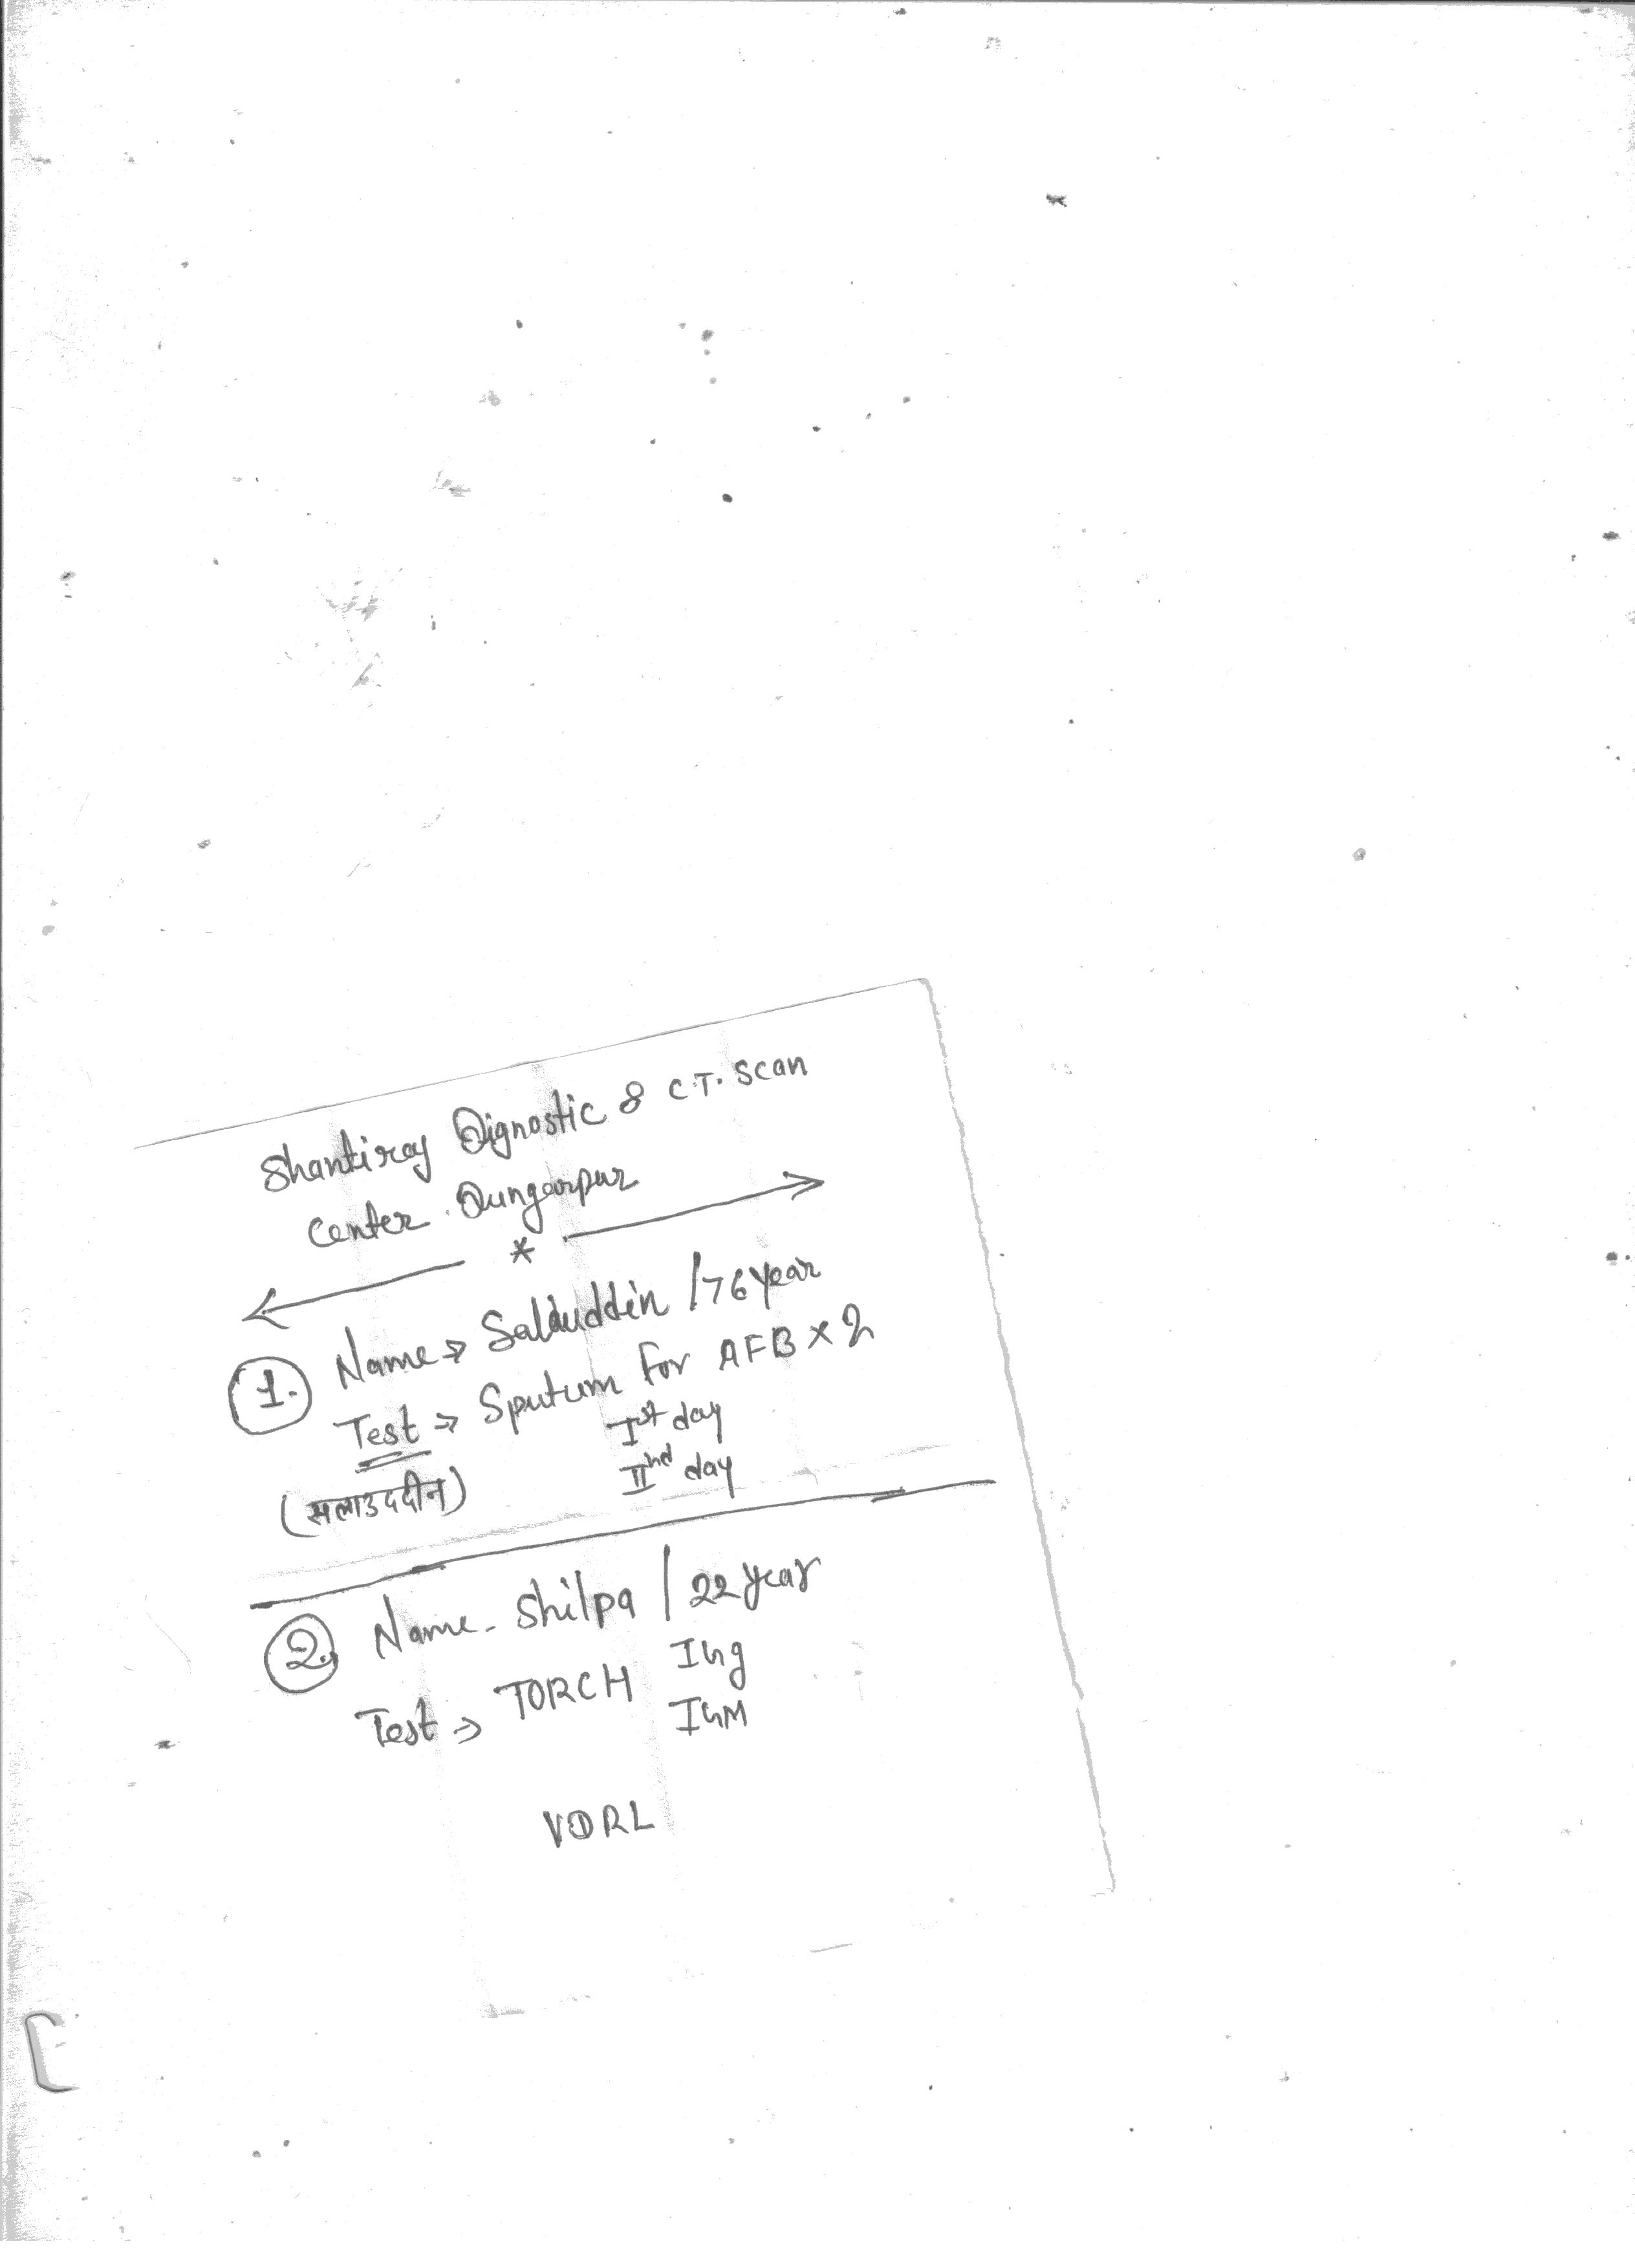 Shantiray Dignostic & C.T. Scan
Center. Dungarpur
*
1. Name → Salauddin / 76 year
Test → Sputum For AFB x 2
Ist day
IInd day
(सलाउददीन)
2. Name - Shilpa / 22 year
Test → TORCH Ihg
IhM
VDRL